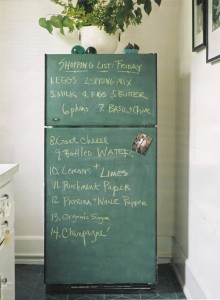 SHOPPING LIST/FRIDAY
1. EGGS 2. SPRING MIX
3. MILK 4. FIGS 5. BUTTER
6 plums 7. BASIL + Chive
8. Goat Cheese
9. Bottled WATERS
10. Lemons + LIMES
11. Parchment Paper
12. PAPRIKA + WHITE Pepper
13. Organic Sugar
14. Champagne!